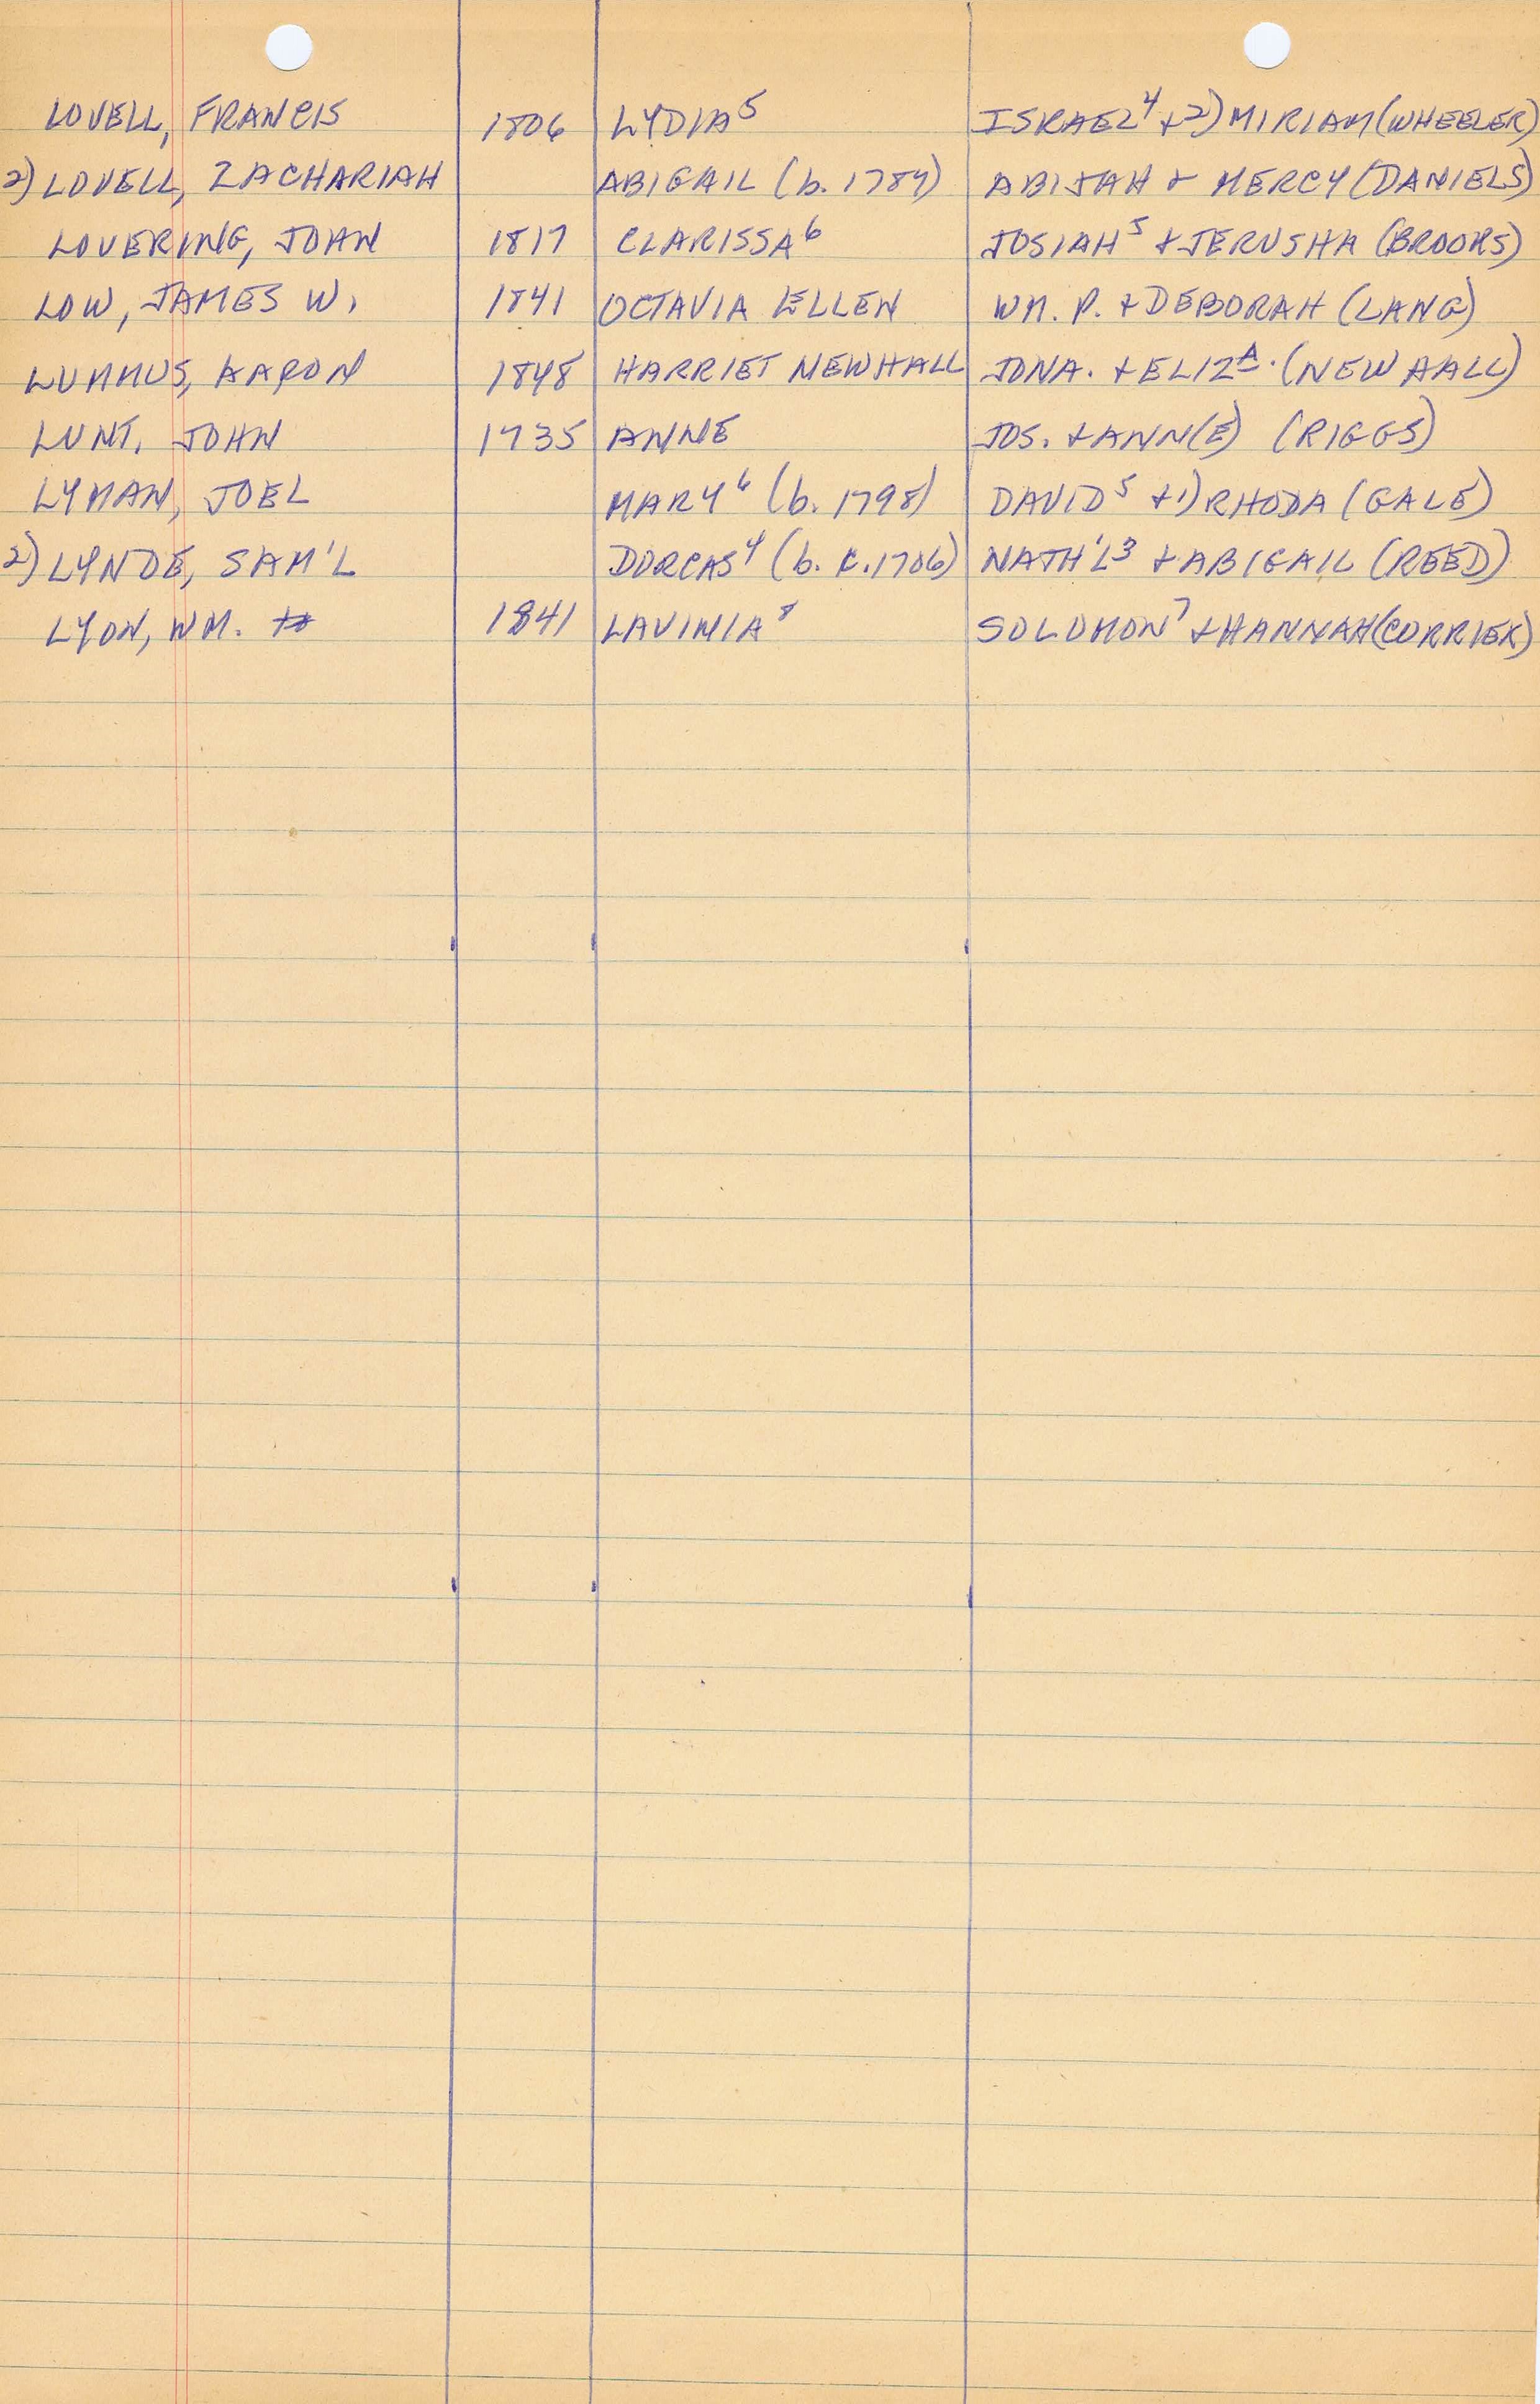 LOVELL, FRANCIS 1806 LYDIA⁵ ISRAEL⁴ + 2) MIRIAM (WHEELER)
2) LOVELL, ZACHARIAH ABIGAIL (b. 1784) ABIJAH & MERCY (DANIELS)
LOVERING, JOHN 1817 CLARISSA⁶ JOSIAH⁵ + JERUSHA (BROOKS)
LOW, JAMES W. 1841 OCTAVIA ELLEN WM. P. + DEBORAH (LANG)
LUMMUS, AARON 1848 HARRIET NEWHALL JONA. + ELIZᴬ. (NEWHALL)
LUNT, JOHN 1735 ANNE JOS. + ANN(E) (RIGGS)
LYMAN, JOEL MARY⁶ (b. 1798) DAVID⁵ + 1) RHODA (GALE)
2) LYNDE, SAM'L DORCAS⁴ (b. c. 1706) NATH'L³ + ABIGAIL (REED)
LYON, WM. 1841 LAVINIA⁸ SOLOMON⁷ + HANNAH (CURRIER)